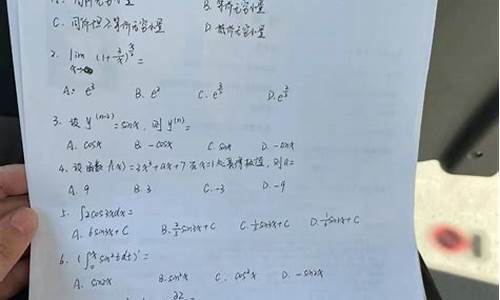 A. 同阶无穷小量 B. 等价无穷小量
C. 同阶但不等价无穷小量 D. 无穷小量
2. lim x→∞ (1+2/x) =
A. e³ B. e² C. e D. e
3. 设 y⁽ⁿ⁻²⁾=sinx, 则 y⁽ⁿ⁾=
A. cosx B. -cosx C. sinx D. -sinx
4. 设函数 f(x)=3x³+ax+7 在x=1处取得极值, 则a=
A. 9 B. 3 C. -3 D. -9
5. ∫2cos3xdx=
A. 6sin3x+C B. 2/3sin3x+C C. 1/3sin3x+C D. 1/6sin3x+C
6. (∫₀ˣ sin²tdt)'=
A. sin2x B. sin²x C. cos²x D. -sin2x